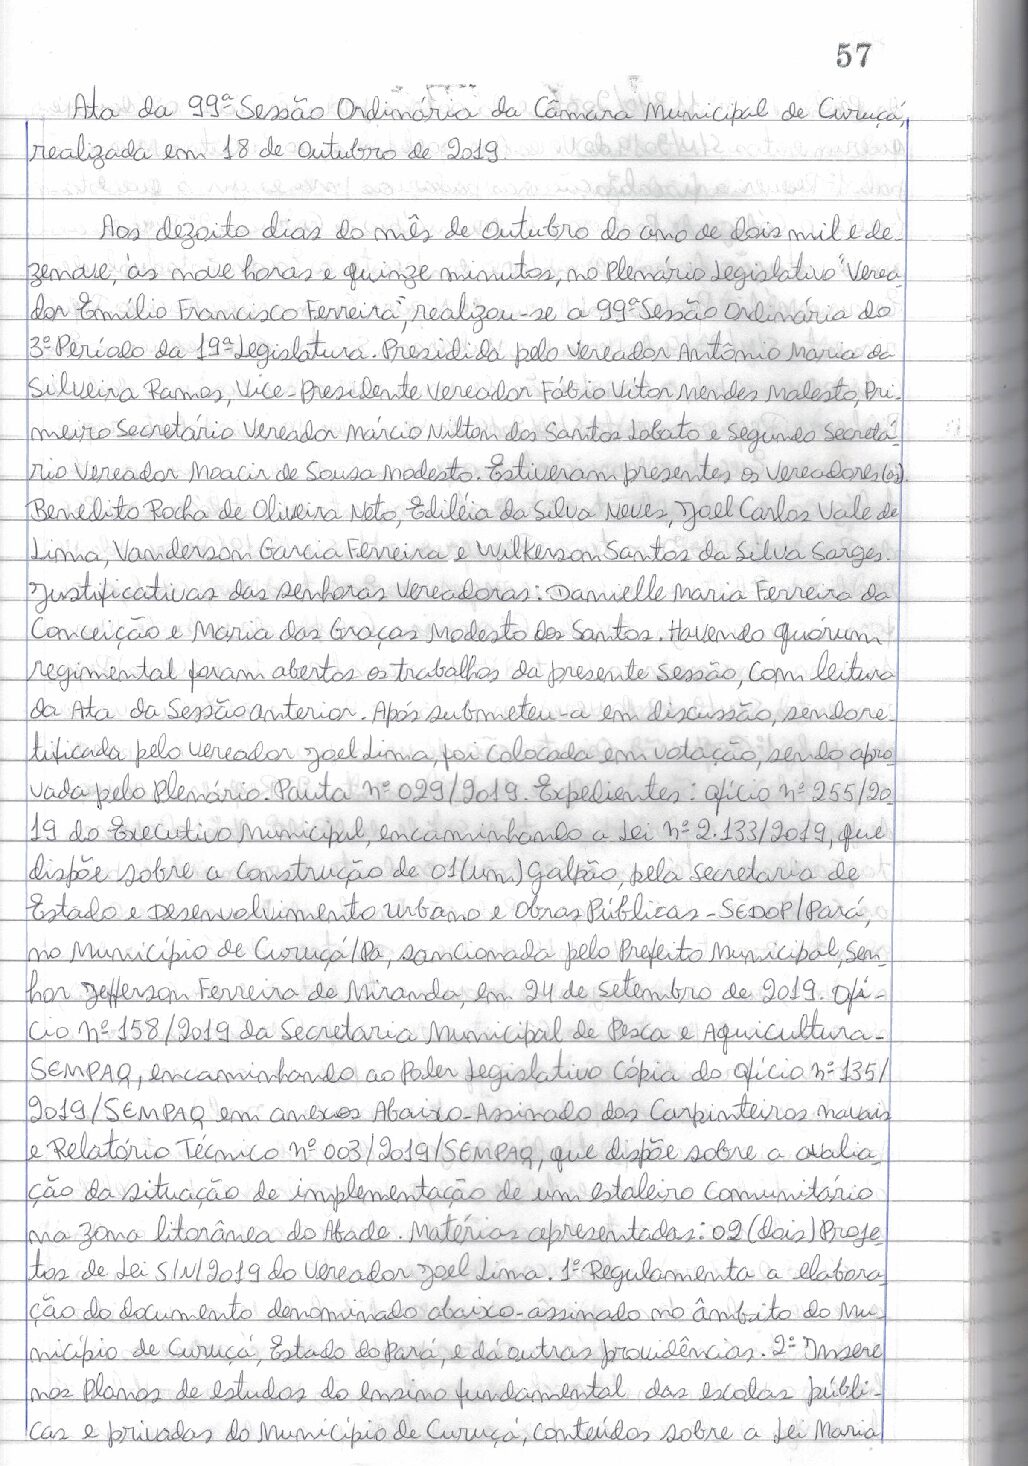 57
Ata da 99ª Sessão Ordinária da Câmara Municipal de Curuçá,
realizada em 18 de Outubro de 2019.
Aos dezoito dias do mês de Outubro do ano de dois mil e de-
zenove, às nove horas e quinze minutos, no Plenário Legislativo "Verea-
dor Emílio Francisco Ferreira", realizou-se a 99ª Sessão Ordinária do
3º Período da 19ª Legislatura. Presidida pelo Vereador Antônio Maria da
Silveira Ramos, Vice-Presidente Vereador Fábio Vitor Mendes Malesto, Pri-
meiro Secretário Vereador Márcio Nilton dos Santos Lobato e Segundo Secretá-
rio Vereador Moacir de Sousa Modesto. Estiveram presentes os Vereadores(as).
Benedito Rocha de Oliveira Neto, Ediléia da Silva Neves, Joel Carlos Vale de
Lima, Vanderson Garcia Ferreira e Wilkerson Santos da Silva Sarges.
Justificativas das senhoras Vereadoras: Danielle Maria Ferreira da
Conceição e Maria das Graças Modesto dos Santos. Havendo quórum
regimental foram abertos os trabalhos da presente Sessão, com leitura
da Ata da Sessão anterior. Após submeteu-a em discussão, sendo re-
tificada pelo Vereador Joel Lima, foi colocada em votação, sendo apro-
vada pelo Plenário. Pauta nº 029/2019. Expedientes: Ofício nº 255/20-
19 do Executivo Municipal, encaminhando a Lei nº 2.133/2019, que
dispõe sobre a construção de 01(um) galpão, pela Secretaria de
Estado e Desenvolvimento Urbano e Obras Públicas - SEDOP/Pará,
no Município de Curuçá/Pa, sancionada pelo Prefeito Municipal, Sen-
hor Jefferson Ferreira de Miranda, em 24 de Setembro de 2019. Ofí-
cio nº 158/2019 da Secretaria Municipal de Pesca e Aquicultura-
SEMPAQ, encaminhando ao Poder Legislativo Cópia do Ofício nº 135/
2019/SEMPAQ em anexos Abaixo-Assinado dos Carpinteiros navais
e Relatório Técnico nº 003/2019/SEMPAQ, que dispõe sobre a avalia-
ção da situação de implementação de um estaleiro comunitário
na zona litorânea do Abade. Matérias apresentadas: 02 (dois) Proje-
tos de Lei S/N/2019 do Vereador Joel Lima. 1º Regulamenta a elabora-
ção do documento denominado abaixo-assinado no âmbito do Mu-
nicípio de Curuçá, Estado do Pará, e dá outras providências. 2º Insere
nos Planos de estudos do ensino fundamental das escolas públi-
cas e privadas do Município de Curuçá, conteúdos sobre a Lei Maria